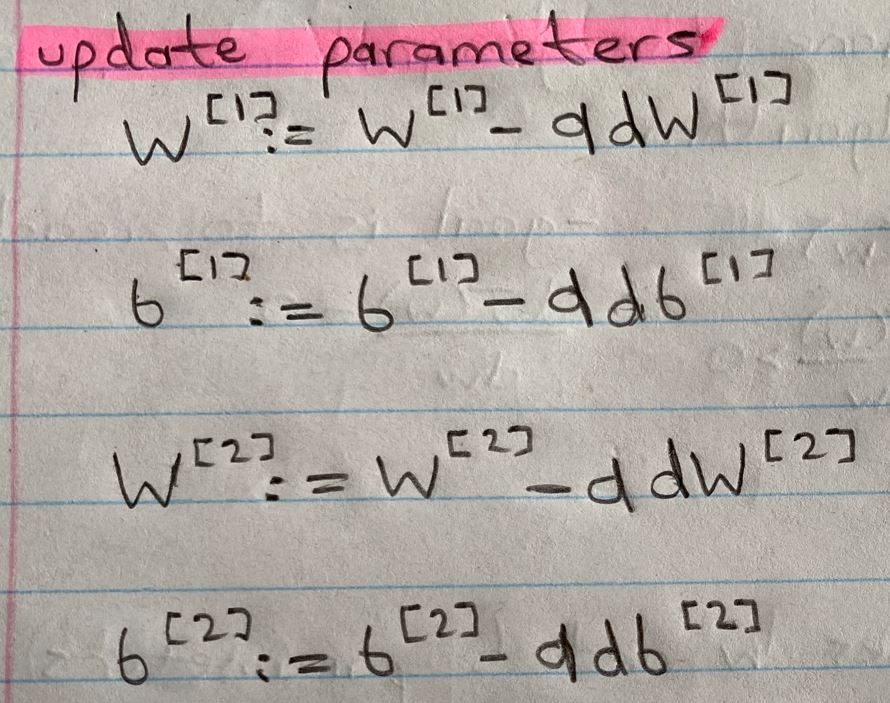 update parameters
W^[1] := W^[1] - α dW^[1]
b^[1] := b^[1] - α db^[1]
W^[2] := W^[2] - α dW^[2]
b^[2] := b^[2] - α db^[2]